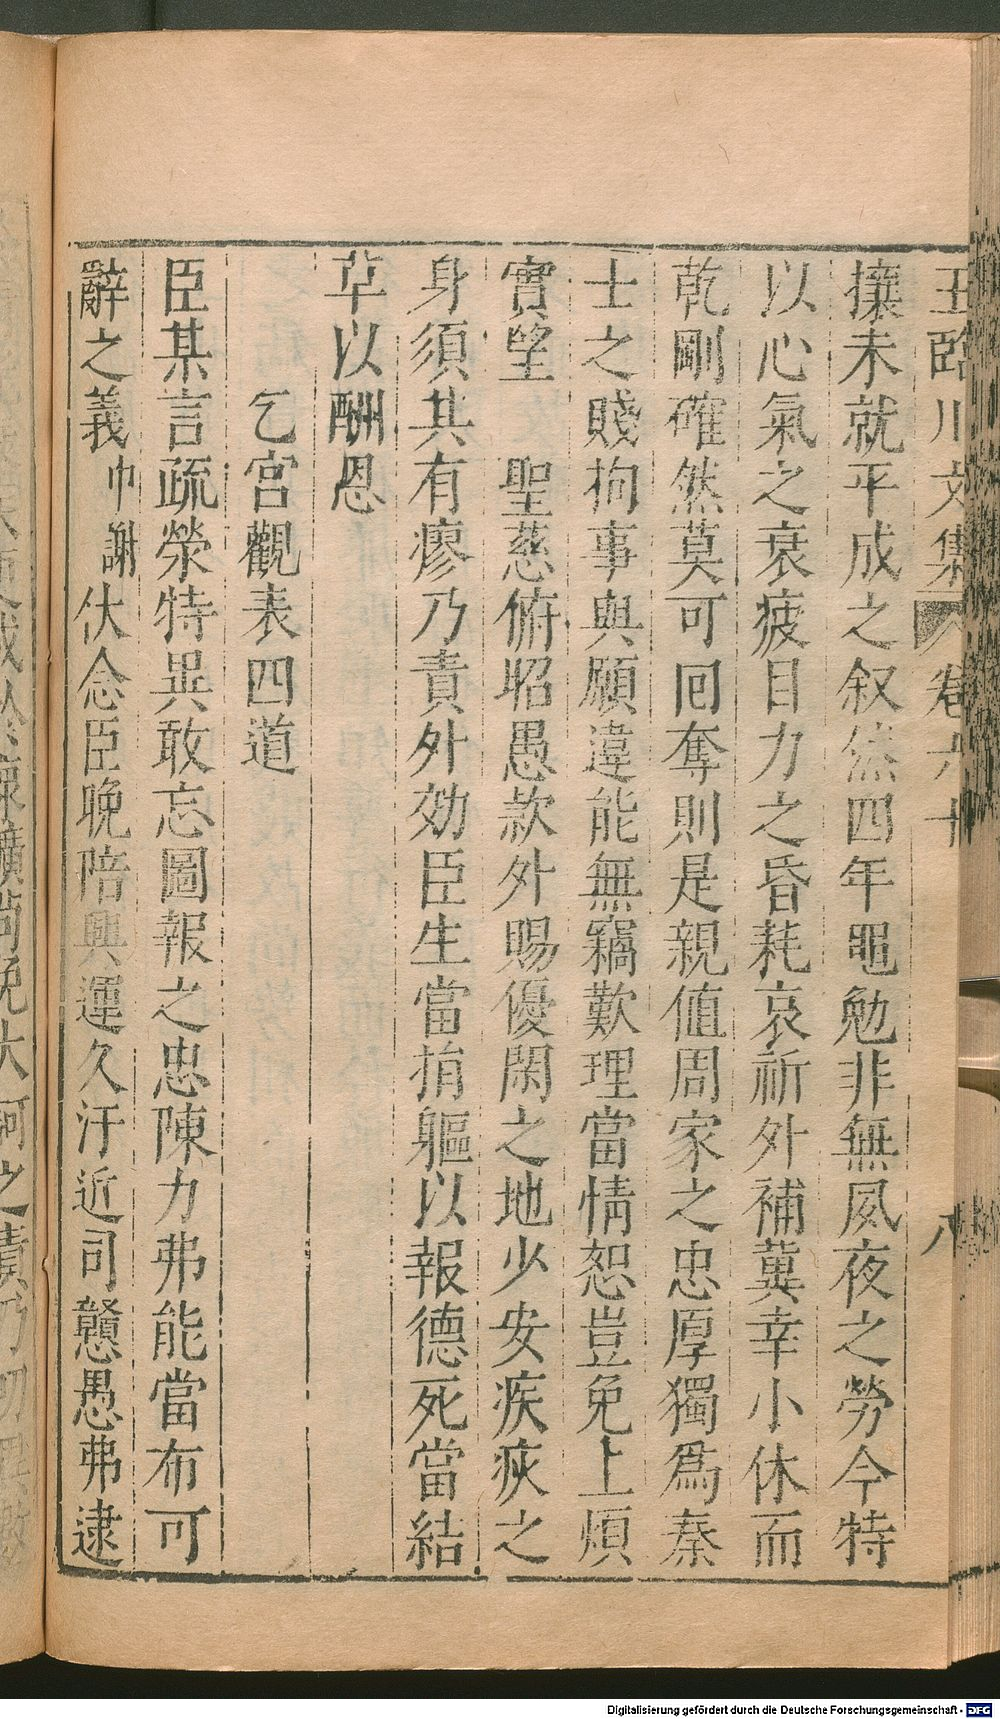 王臨川文集 卷六十 八
攘未就平成之叙然四年黽勉非無夙夜之勞今特
以心氣之衰疲目力之昏耗哀祈外補冀幸小休而
乾剛確然莫可回奪則是親値周家之忠厚獨爲秦
士之賤拘事與願違能無竊歎理當情恕豈免上煩
實望 聖慈俯昭愚款外賜優閑之地少安疾疢之
身須其有瘳乃責外効臣生當捐軀以報德死當結
草以酬恩
乞宮觀表四道
臣某言疏榮特異敢忘圖報之忠陳力弗能當布可
辭之義中謝伏念臣晚陪興運久汙近司戇愚弗逮
Digitalisierung gefördert durch die Deutsche Forschungsgemeinschaft - DFG